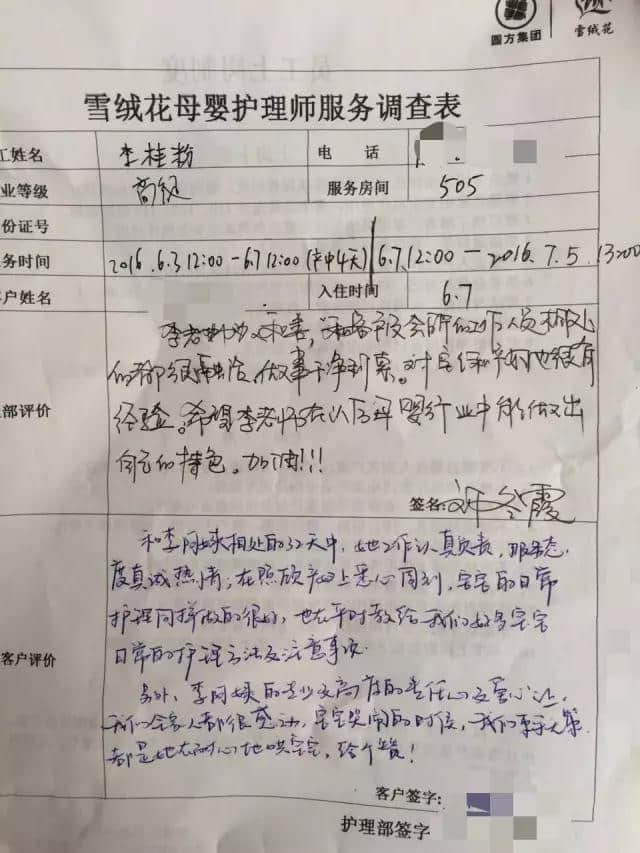 圆方集团 雪绒花
雪绒花母婴护理师服务调查表
工姓名 李桂粉 电 话
业等级 高级 服务房间 505
份证号
务时间 2016.6.3 12:00-6.7 12:00(卡中4天) 6.7.12:00-2016.7.5.13:00
客户姓名 入住时间 6.7
李老师为人和善,和客户及会所的工作人员相处
的都很融洽,做事干净利索。对宝宝和产妇也很有
经验。希望李老师在以后母婴行业中能做出
自己的特色。加油!!!
部评价
签名:
和李阿姨相处的32天中,她工作认真负责,服务态
度真诚热情;在照顾产妇上悉心周到,宝宝的日常
护理同样做的很好,也在平时教给我们好多宝宝
日常的护理方法及注意事项.
客户评价
另外,李阿姨的专业及高度的责任心及爱心让
我们全家人都很感动,宝宝哭闹的时候,我们束手无策
都是她在耐心地哄宝宝,给个赞!
客户签字:
护理部签字